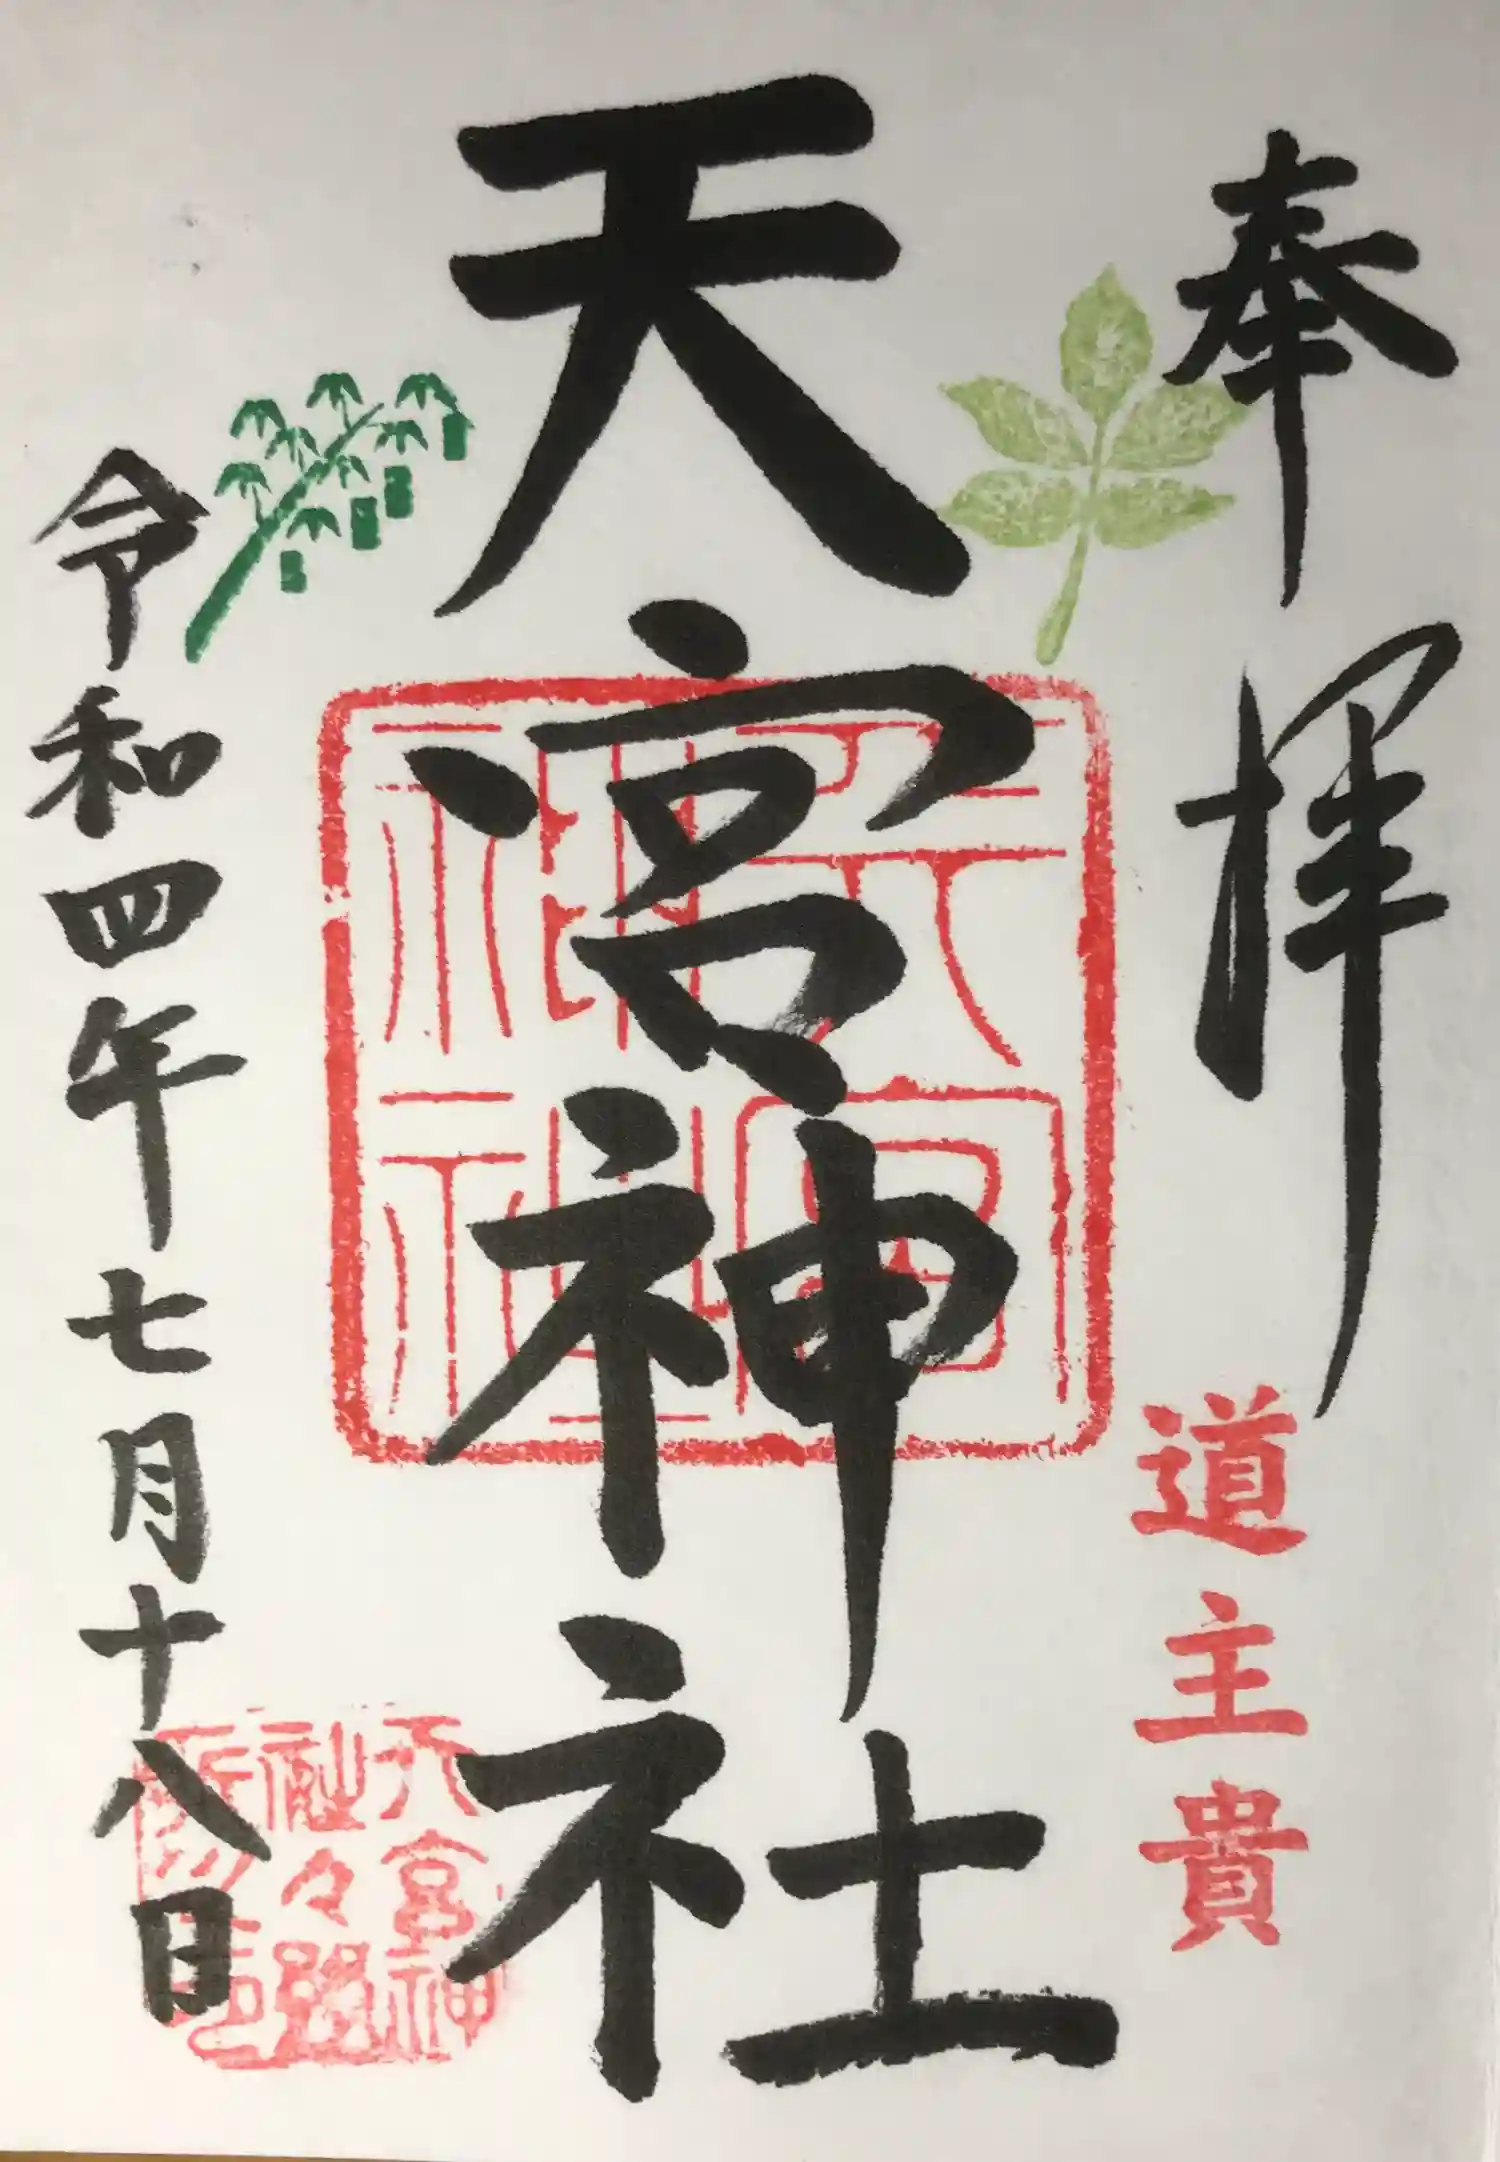 奉拝
道主貴
天宮神社
天宮神社
令和四年七月十八日
天宮神
社々務
所之印